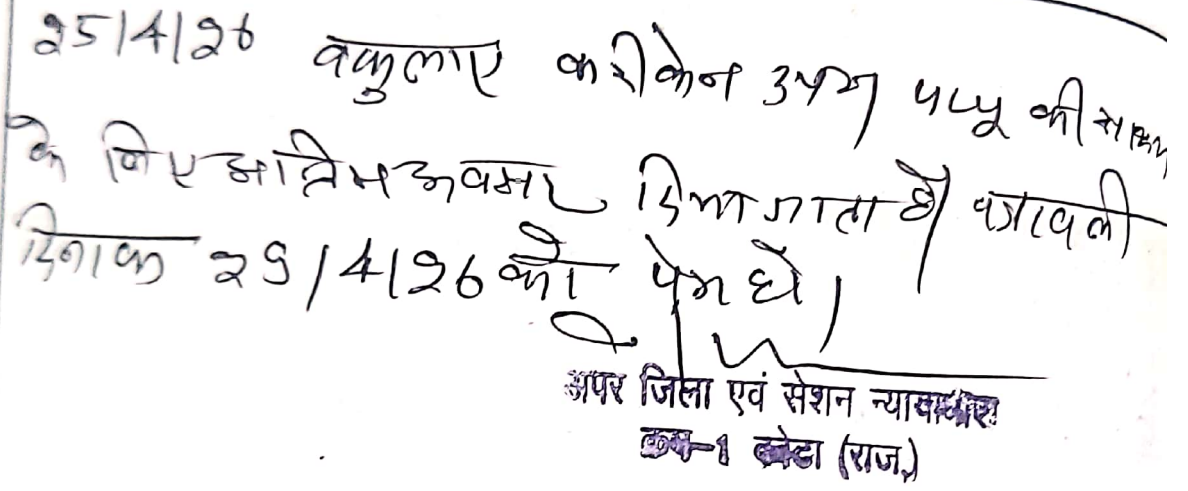 25/4/26 वकुलाए फरीकेन उपस्थ पप्पू की साक्ष्य
के लिए अन्तिम अवसर दिया जाता है। पत्रावली
दिनांक 29/4/26 को पेश हो।
अपर जिला एवं सेशन न्यायाधीश
क्रम-1 कोटा (राज.)